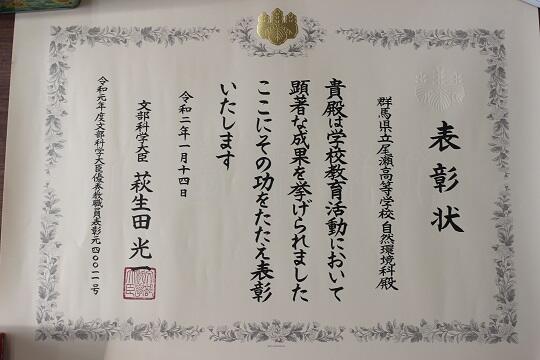 表彰状
群馬県立尾瀬高等学校 自然環境科殿
貴殿は学校教育活動において
顕著な成果を挙げられました
ここにその功をたたえ表彰
いたします
令和二年一月十四日
文部科学大臣 萩生田 光一
令和元年度文部科学大臣優秀教職員表彰元四〇〇二一号